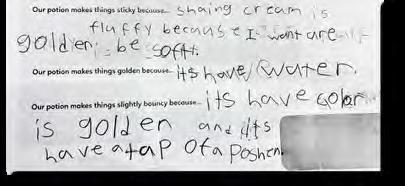 Our potion makes things sticky because... shaing cream is
fluffy because I want are
golden. be soft.
Our potion makes things golden because... its have water.
Our potion makes things slightly bouncy because... its have color
is golden and its
have a tap of a poshen